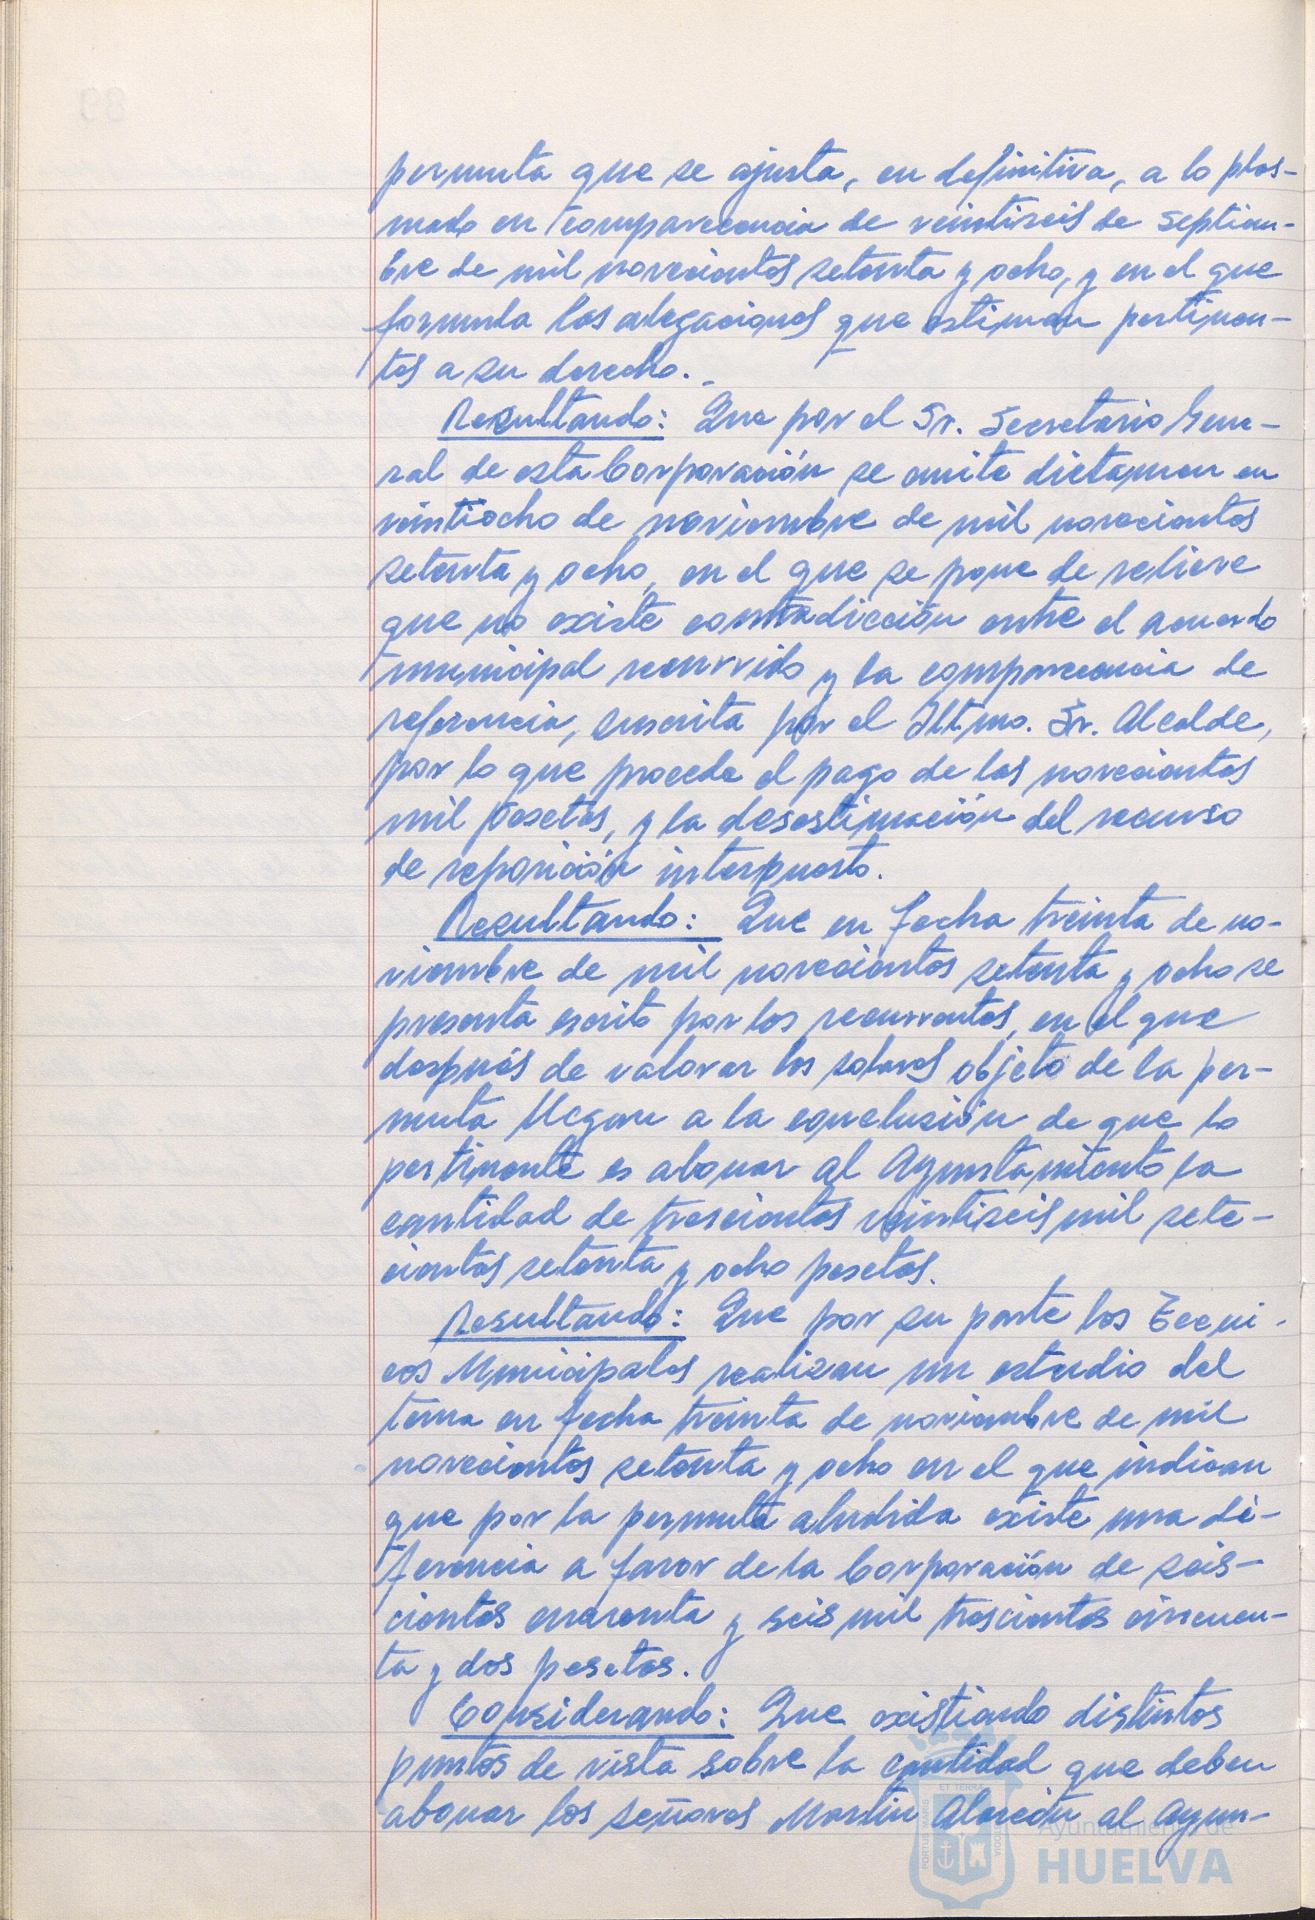 permuta que se ajusta, en definitiva, a lo plas-
mado en comparecencia de veintiseis de septiem-
bre de mil novecientos setenta y ocho, y en el que
formula las alegaciones que estiman pertinen-
tes a su derecho.-
Resultando: Que por el Sr. Secretario Gene-
ral de esta Corporación se emite dictamen en
veintiocho de noviembre de mil novecientos
setenta y ocho, en el que se pone de relieve
que no existe contradicción entre el acuerdo
municipal recurrido y la comparecencia de
referencia, suscrita por el Iltmo. Sr. Alcalde,
por lo que procede el pago de las novecientas
mil pesetas, y la desestimación del recurso
de reposición interpuesto.
Resultando: Que en fecha treinta de no-
viembre de mil novecientos setenta y ocho se
presenta escrito por los recurrentes, en el que
después de valorar los solares objeto de la per-
muta llegan a la conclusión de que lo
pertinente es abonar al Ayuntamiento la
cantidad de trescientas veintiseis mil sete-
cientas setenta y ocho pesetas.
Resultando: Que por su parte los Tecni-
cos Municipales realizan un estudio del
tema en fecha treinta de noviembre de mil
novecientos setenta y ocho en el que indican
que por la permuta aludida existe una di-
ferencia a favor de la Corporación de seis-
cientas cuarenta y seis mil trescientas cincuen-
ta y dos pesetas.
Considerando: Que existiendo distintos
puntos de vista sobre la cantidad que deben
abonar los señores Martín Alarcón al Ayun-
Ayuntamiento de
HUELVA